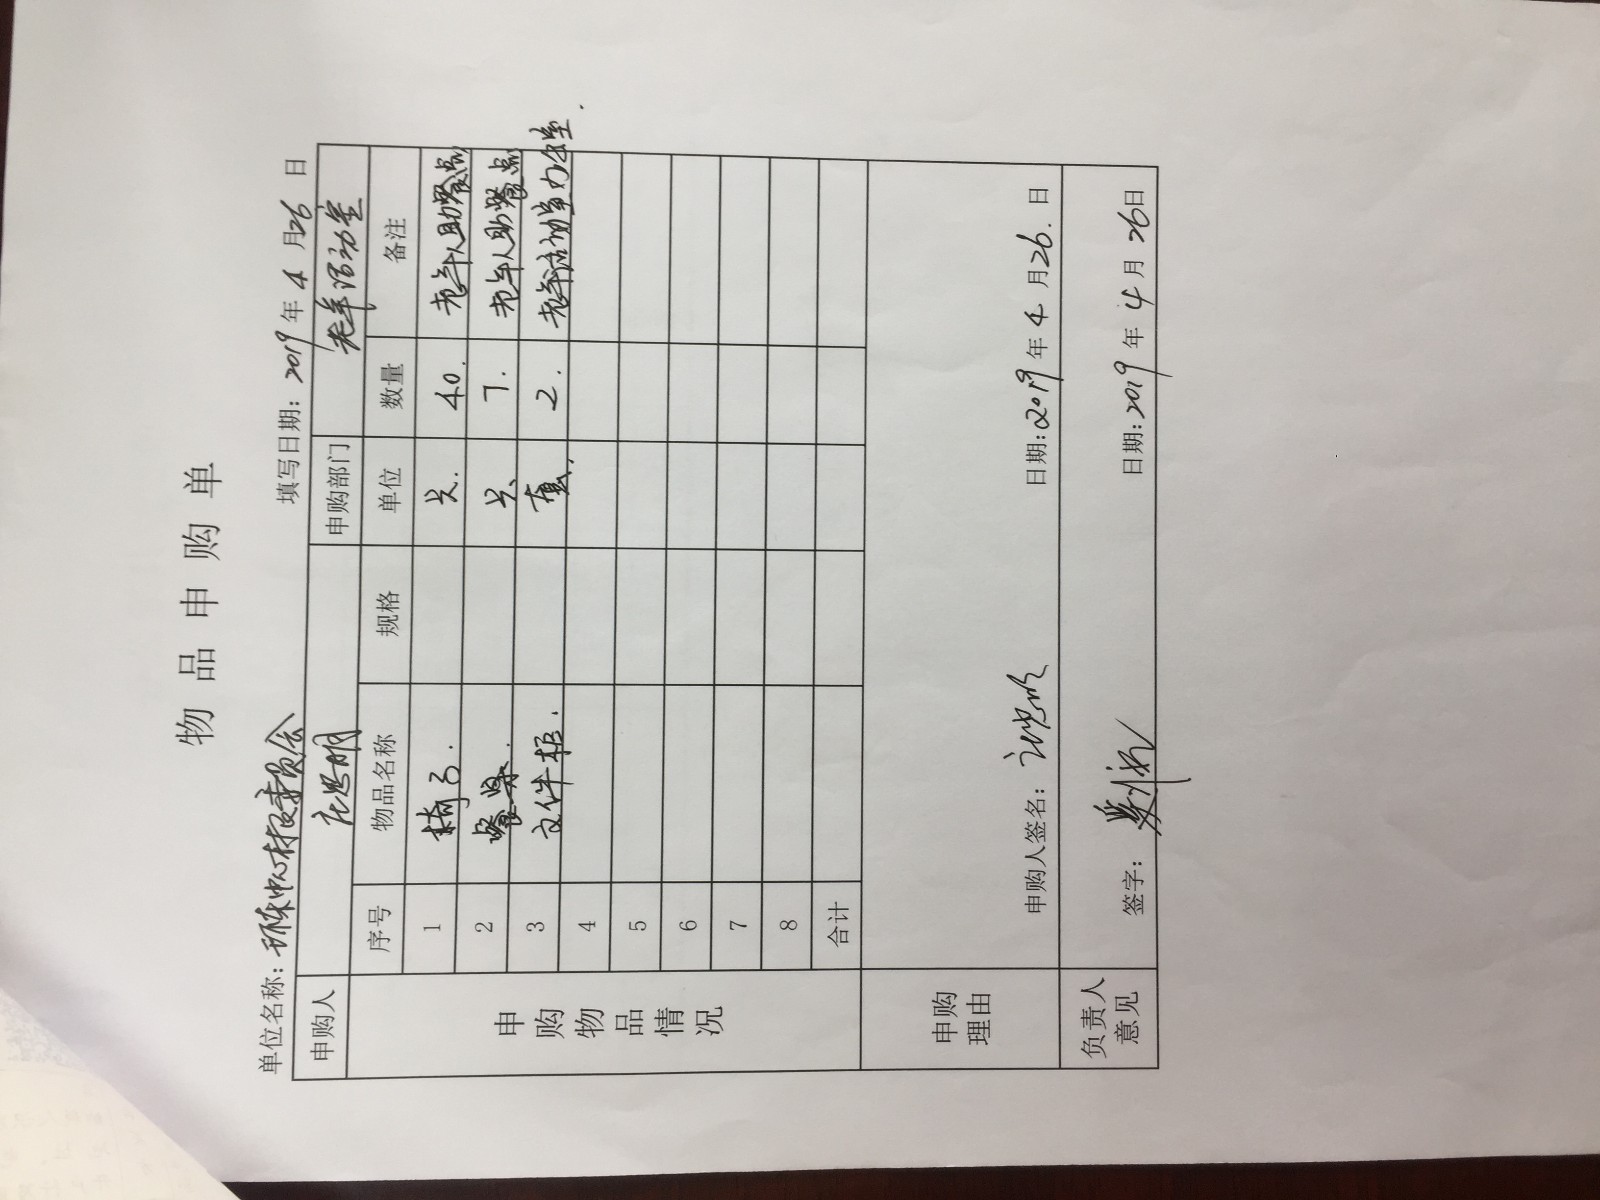 物品申购单
单位名称：环东中心村委员会 填写日期：2019年4月26日
申购人 申购部门 老年活动室
申购物品情况
序号 物品名称 规格 单位 数量 备注
1 椅子. 只. 40. 老年人助餐点
2 餐桌. 只. 7. 老年人助餐点
3 文件柜. 2. 老年活动室办公室.
4
5
6
7
8
合计
申购理由
申购人签名： 日期：2019年4月26.日
负责人意见
签字： 日期：2019年4月26日